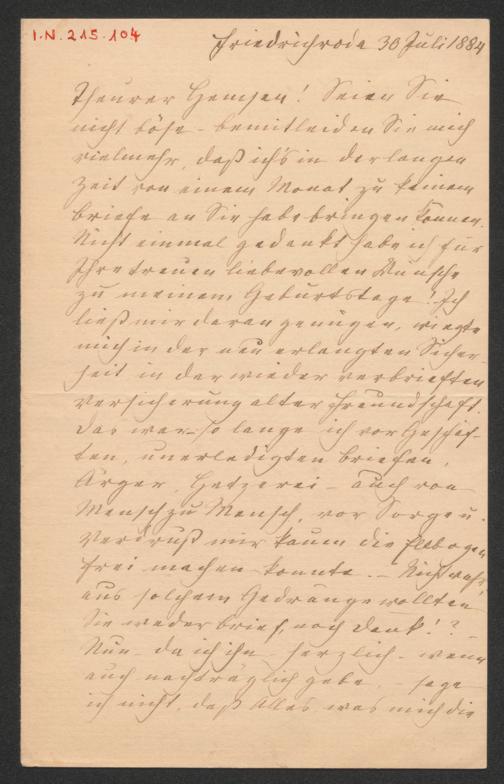 I.N. 215.104
Friedrichroda 30 Juli 1884
Theurer Hemsen! Seien Sie
nicht böse - bemitleiden Sie mich
vielmehr, daß ich's in der langen
Zeit von einem Monat zu keinem
Briefe an Sie habe bringen können.
Nicht einmal gedankt habe ich für
Ihre treuen liebevollen Wünsche
zu meinem Geburtstage! Ich
ließ mir daran genügen, wiegte
mich in der neu erlangten Sicher-
heit in der wieder verbrieften
Versicherung alter Freundschaft.
Das war so lange ich vor Geschäf-
ten, unerledigten Briefen,
Ärger, Hetzerei - auch von
Mensch zu Mensch, vor Sorge u.
Verdruß mir kaum die Ellbogen
frei machen konnte. - Nicht wahr,
aus solchem Gedränge wollten
Sie weder Brief, noch Dank!? -
Nun - da ich ihn - herzlich - wenn
auch nachträglich gebe, - sage
ich nicht, daß Alles was mich die